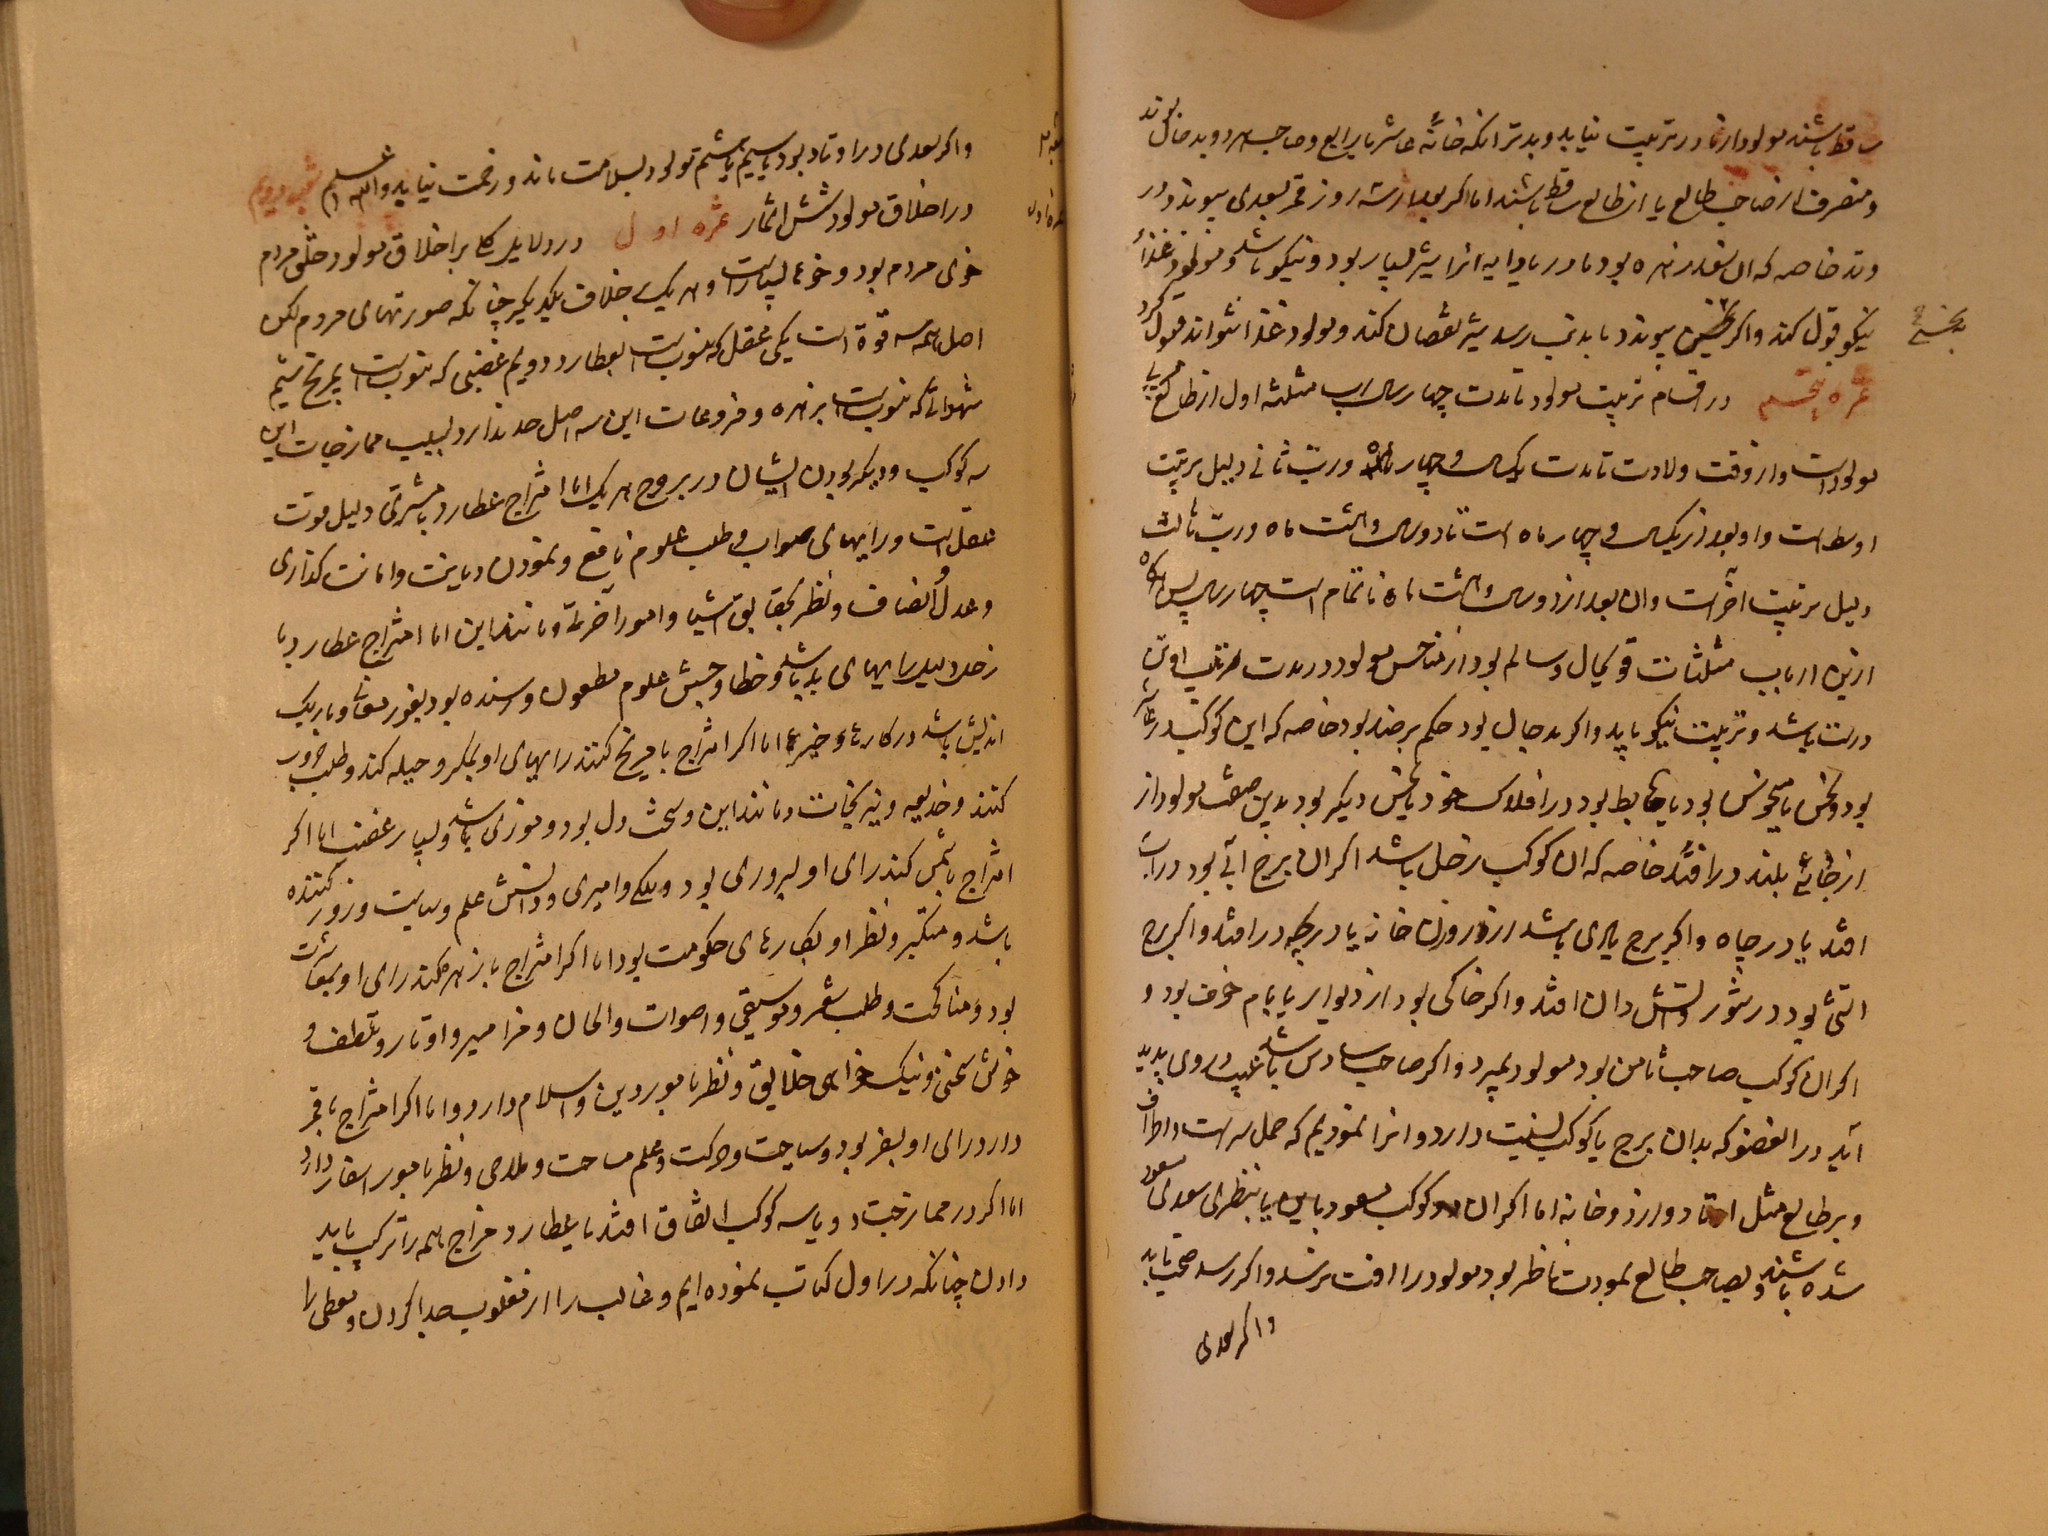 ساقط باشند مولود از مادر تربیت نیابد و بدتر آنکه خانه عاشر یا رابع و صاحب هر دو بد حال بوند
و منصرف از صاحب طالع یا از طالع ساقط باشند اما اگر بعد از سه روز قمر بسعدی پیوندد در
وتد خاصه که آن سعد زهره بود مادر یا دایه انرا شیر بسیار بود و نیکو باشد و مولود غذا
نیکو قبول کند و اگر بنحس پیوندد یا بذنب رسد شیر نقصان کند و مولود غذا نتواند قبول کرد
بنحسی
ثمره پنجم در اقسام تربیت مولود تا مدت چهار سال رب مثلثه اول از طالع مربی
مولود است و از وقت ولادت تا مدت یکسال و چهار ماه و رب ثانی دلیل تربیت
اوسط است و او بعد از یکسال و چهار ماه است تا دو سال و هشت ماه و رب ثالث
دلیل تربیت آخر است و آن بعد از دو سال و هشت ماه تا تمام است چهار سال پس هرگاه
ازین ارباب مثلثات قوی حال و سالم بود از مناحس مولود در مدت تربیت او تن
درست باشد و تربیت نیکو یابد و اگر بد حال بود حکم بر ضد بود خاصه که این کوکب در عاشر
بود و نحس یا منحوس بود یا هابط بود در افلاک خود یا نحس دیگر بود بدین صفت مولود از
از جائی بلند در افتد خاصه که آن کوکب زحل باشد اگر آن برج آبی بود در آب
افتد یا در چاه و اگر برج بادی باشد از روزن خانه یا دریچه در افتد و اگر برج
آتشی بود در تنور و آتش دان افتد و اگر خاکی بود از دیوار یا بام خوف بود و
اگر آن کوکب صاحب ثامن بود مولود بمیرد و اگر صاحب سادس باشد عیب در وی پدید
آید در العضو که بدان برج یا کوکب نسبت دارد و انرا نمودیم که حمل سر است و اطراف
و بر طالع مثل اوتاد و ارز و خانه اما اگر آن دو کوکب مسعود باین یا بنظری سعدی مسعود
شده باشند و بصاحب طالع بمودت ناظر بود مولود را آفت نرسد و اگر رسد صحت یابد
و اگر سعدی
و اگر سعدی در اوتاد بود یا سیم یا ششم تولود بسلامت ماند و زحمت نیابد والله اعلم شعبه دویم
در اخلاق مولود شش اثمار ثمره اول در دلایل کلی بر اخلاق مولود خلق مردم
خوی مردم بود و خوها بسیار است و هر یک بر خلاف یکدیگر چنانکه صورتهای مردم لکن
اصل همه سه قوة است یکی عقل که منسوب است بعطارد دویم غضبی که منسوب است بمریخ سیم
شهوانی که منسوب است بزهره و فروعات این سه اصل حد ندارد بسبب ممازجات این
سه کوکب و دیگر بودن ایشان در بروج هر یک اما امتزاج عطارد با مشتری دلیل قوت
عقل است و رایهای صواب و طلب علوم نافع و نمودن دیانت و امانت گذاری
و عدل و انصاف و نظر بحقایق اشیا و امور آخرت و مانند این اما امتزاج عطارد با
زحل دلیل رایهای بد باشد و خطا و جستن علوم مطعون و رسنده بود بغور معانی و باریک
اندیش باشد در کارها و خبرها اما اگر امتزاج با مریخ کنند رایهای او بمکر و حیله کند و طلب حرب
کنند و خدیعه و نیرنجات و مانند این و سخت دل بود و موذی باشد و بسیار غضب اما اگر
امتزاج بشمس کند رای او بسروری بود و ملکی و امیری و دانش علم و سیاست و زور کننده
باشد و متکبر و نظر او بکارهای حکومت بود اما اگر امتزاج با زهره کند رای او بمعاشرت
بود و مناکحت و طلب شعر و موسیقی و اصوات و الحان و مزامیر و اوتار و تلطف و
خوش سخنی و نیک خواهی خلایق و نظر بامور دین و اسلام دارد و اما اگر امتزاج با قمر
دارد رای او بسفر بود و سیاحت و حرکت و علم مساحت و ملاحی و نظر بامور اسفار دارد
اما اگر در ممازجت دو یا سه کوکب اتفاق افتد با عطارد مزاج همه را ترکیب باید
دادن چنانکه در اول کتاب نموده ایم و غالب را از مغلوب جدا کردن و معطی را